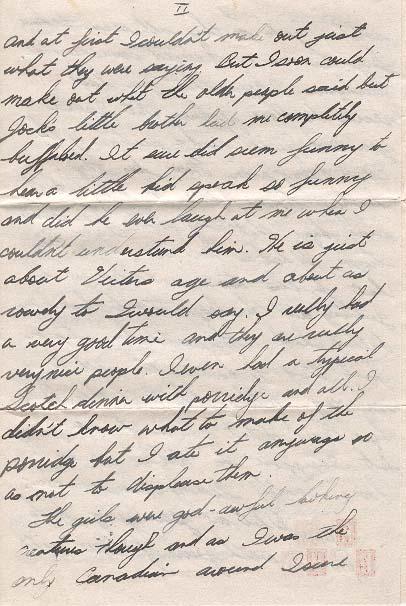 II
and at first I couldn't make out just
what they were saying But I soon could
make out what the older people said but
Jocks little brother had me completly
buffaloed. It sure did seem funny to
hear a little kid speak so funny
and did he ever laugh at me when I
couldn't understand him. He is just
about Victors age and about as
rowdy to I would say. I really had
a very good time and they are really
very nice people. I even had a typical
Scotch dinner with porridge and all. I
didn't know what to make of the
porridge but I ate it anyways so
as not to displease them.
The girls were god-awful looking
creatures though and as I was the
only Canadian around I sure